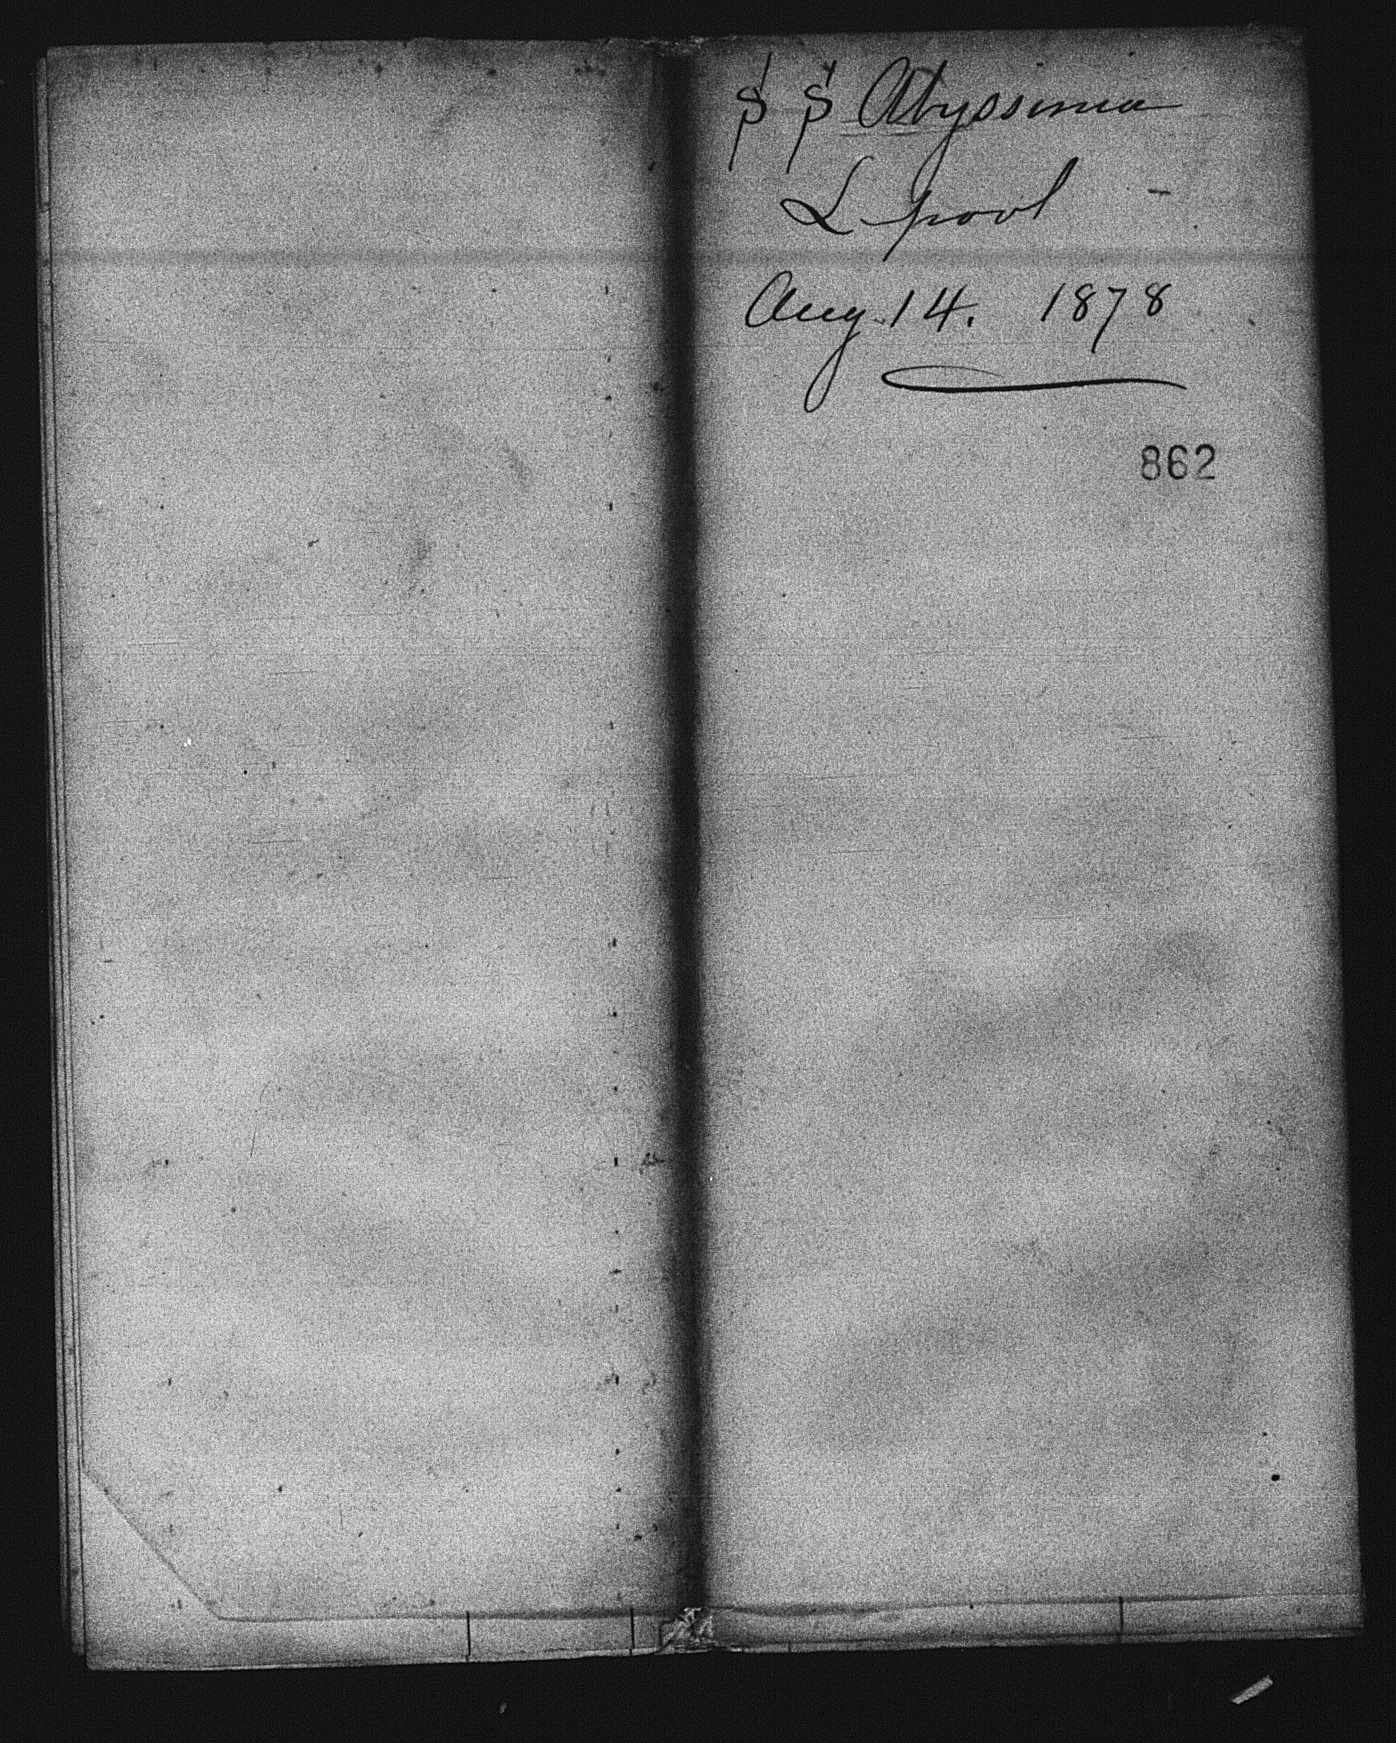 S S Abyssinia
L pool -
Aug 14. 1878
862